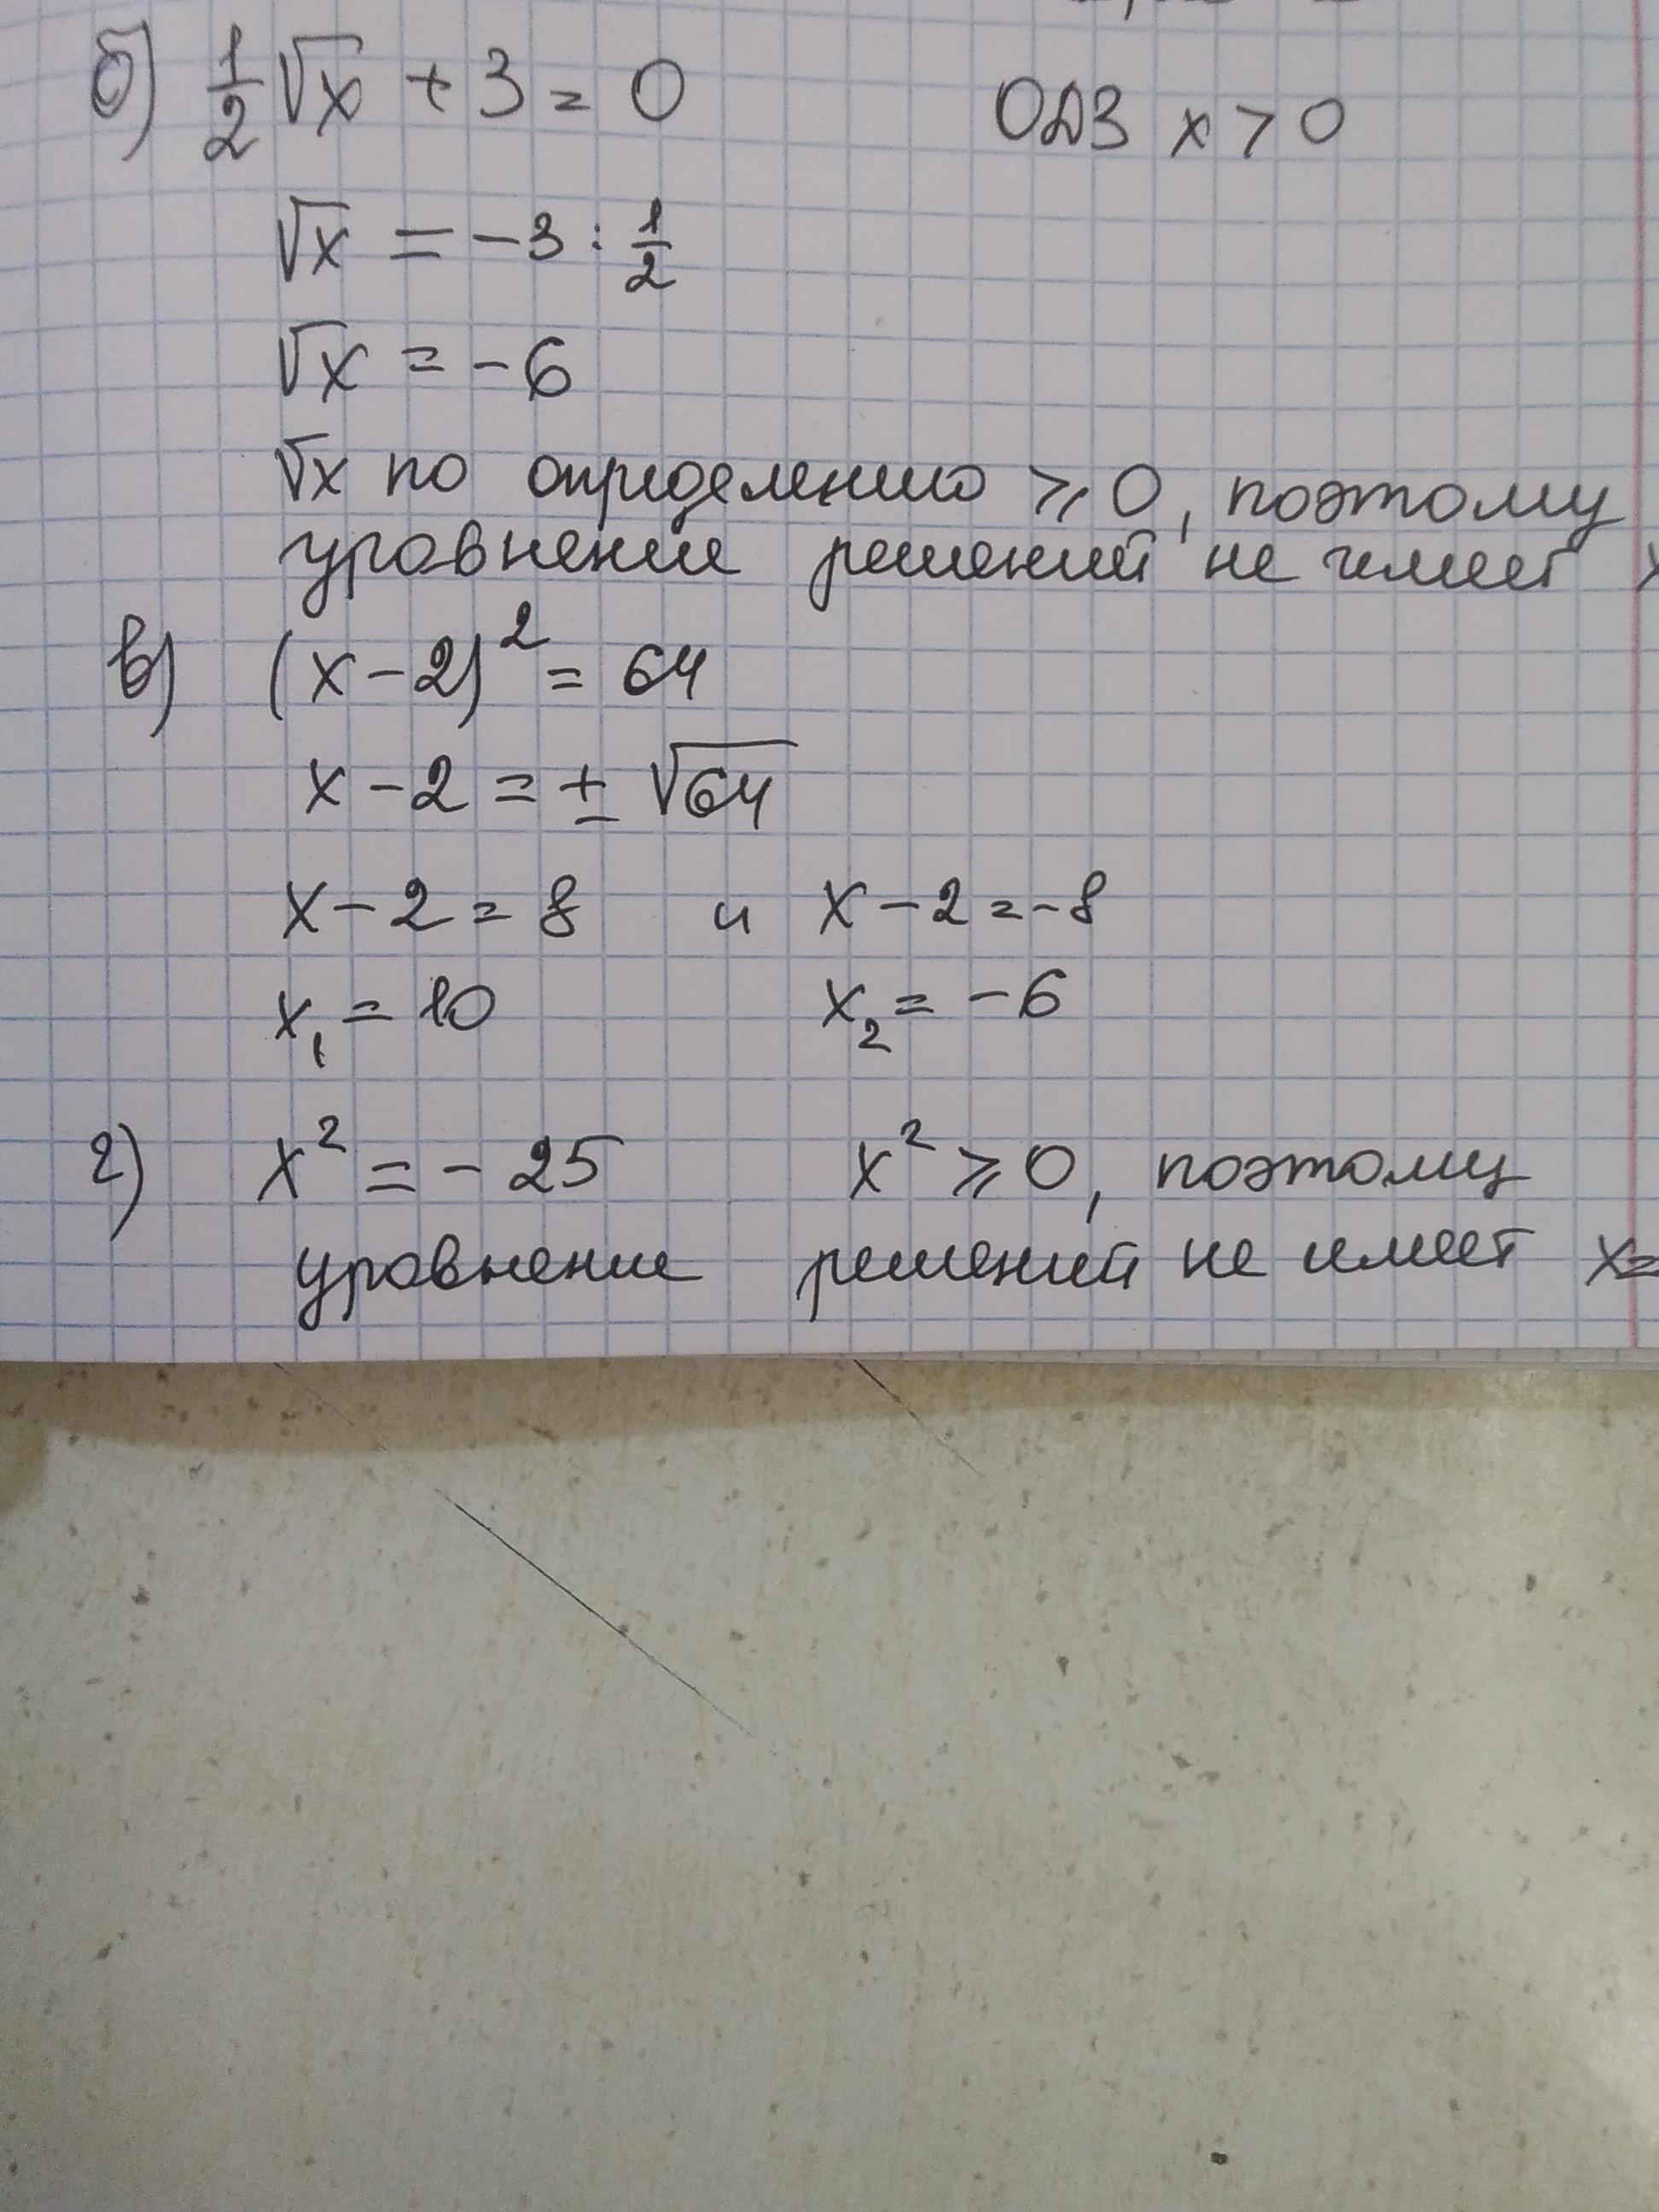 б) 1/2 √x + 3 = 0 ОДЗ x > 0
√x = -3 : 1/2
√x = -6
√x по определению ⩾ 0, поэтому
уровнение решений не имеет
в) (x-2)² = 64
x - 2 = ± √64
x - 2 = 8 и x - 2 = -8
x₁ = 10 x₂ = -6
г) x² = - 25 x² ⩾ 0, поэтому
уровнение решений не имеет x=